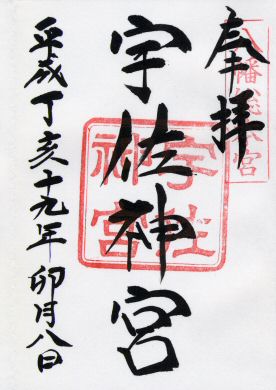 奉拝
八幡総本宮
宇佐神宮
宇佐
神宮
平成丁亥十九年卯月八日